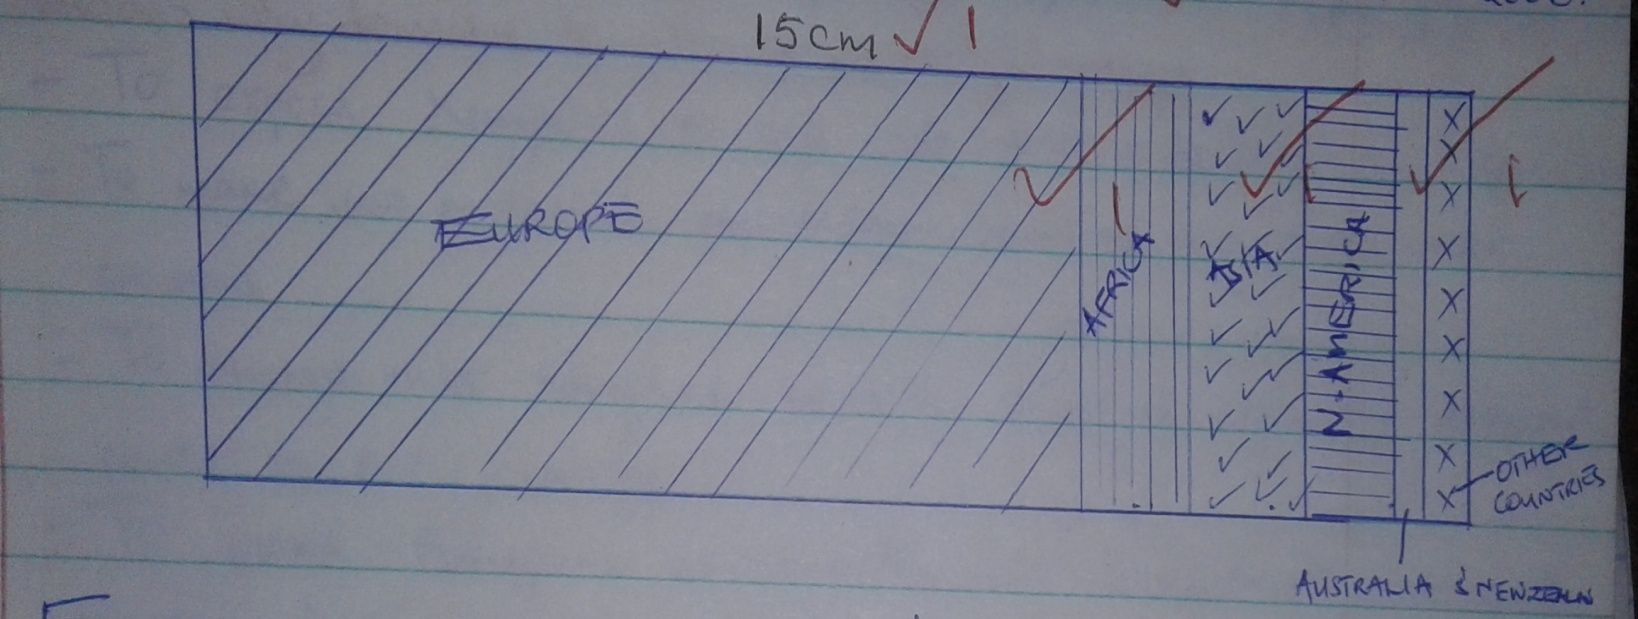 15cm ✓ 1
EUROPE
AFRICA
ASIA
N-AMERICA
OTHER
COUNTRIES
AUSTRALIA & NEWZEALN